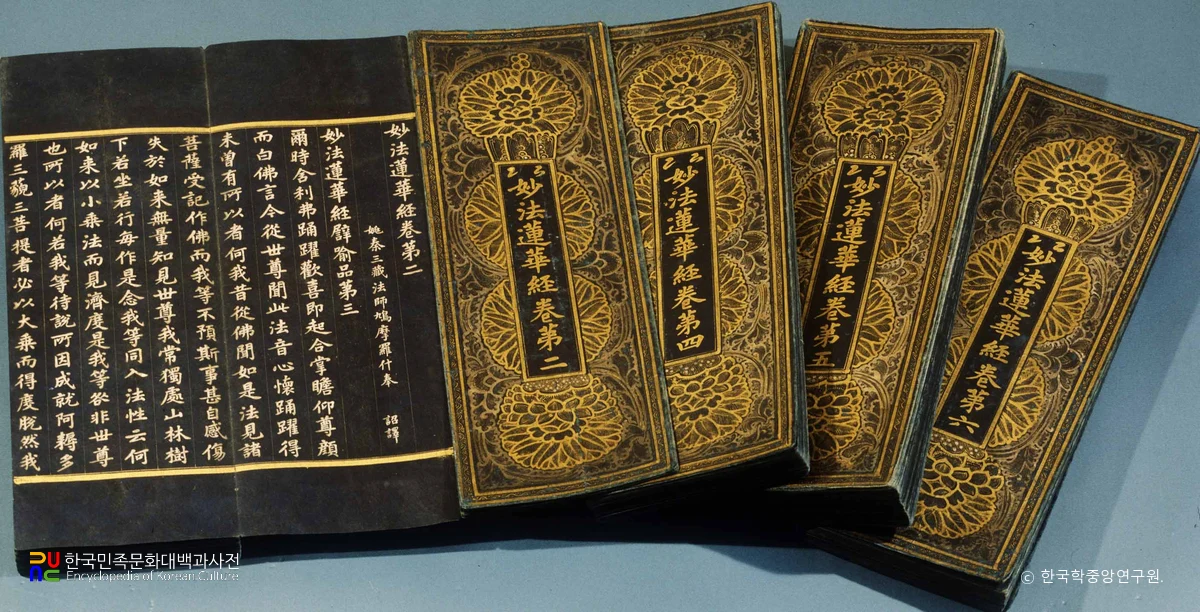 妙法蓮華經卷第二
姚秦三藏法師鳩摩羅什奉 詔譯
妙法蓮華經譬喻品第三
爾時舍利弗踊躍歡喜即起合掌瞻仰尊顏
而白佛言今從世尊聞此法音心懷踊躍得
未曾有所以者何我昔從佛聞如是法見諸
菩薩受記作佛而我等不預斯事甚自感傷
失於如來無量知見世尊我常獨處山林樹
下若坐若行每作是念我等同入法性云何
如來以小乘法而見濟度是我等咎非世尊
也所以者何若我等待說所因成就阿耨多
羅三藐三菩提者必以大乘而得度脫然我
妙法蓮華經卷第二
妙法蓮華經卷第四
妙法蓮華經卷第五
妙法蓮華經卷第六
한국민족문화대백과사전
Encyclopedia of Korean Culture
© 한국학중앙연구원.